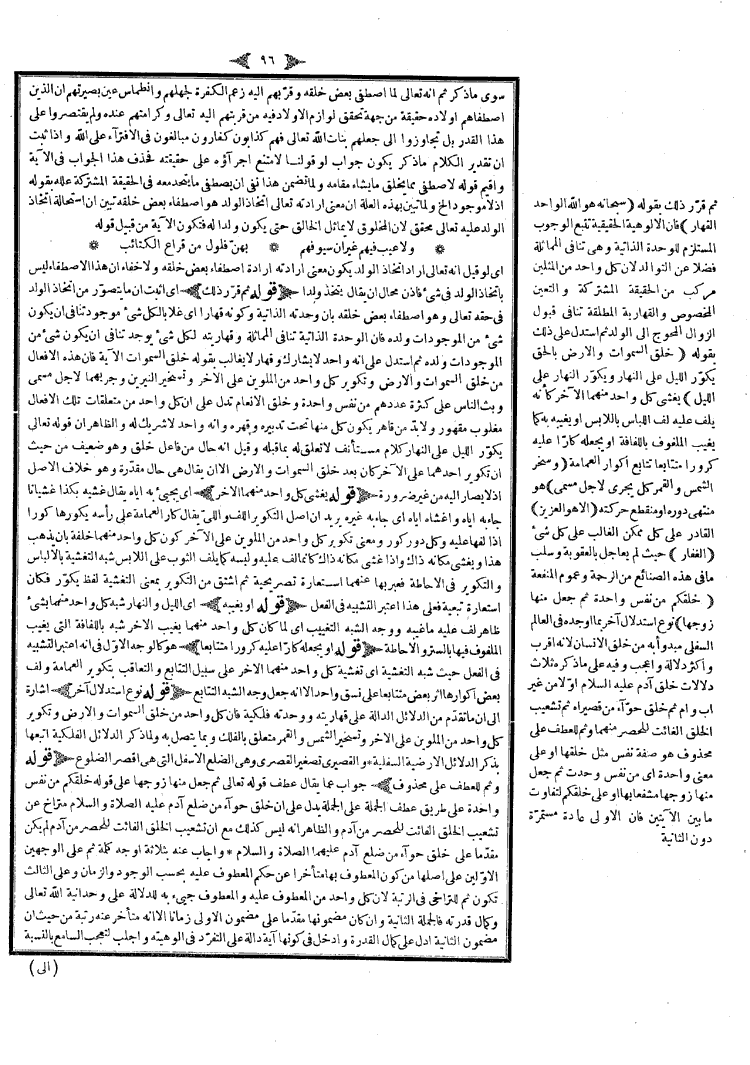 ٩٦
سوى ما ذكر ثم انه تعالى لما اصطفى بعض خلقه وقربهم اليه زعم الكفرة لجهلهم وانطماس عين بصيرتهم ان الذين
اصطفاهم اولاده حقيقة من جهة تحقق لوازم الاولاد فيه من قربتهم اليه تعالى وكرامتهم عنده ولم يقتصروا على
هذا القدر بل تجاوزوا الى جعلهم بنات الله تعالى فهم كذابون كفارون مبالغون فى الافتراء على الله واذا ثبت
ان تقدير الكلام ما ذكر يكون جواب لو قولنا لامتنع اجرآؤه على حقيقته فحذف هذا الجواب فى الآية
واقيم قوله لاصطفى مما يخلق ما يشاء مقامه ولما تضمن هذا نفى ان يصطفى ما يتحد معه فى الحقيقة المشتركة علله بقوله
اذ لا موجود الخ ولما تبين بهذه العلة ان معنى ارادته تعالى اتخاذ الولد هو اصطفاء بعض خلقه تبين ان استحالة اتخاذ
الولد عليه تعالى محقق لان المخلوق لا يماثل الخالق حتى يكون ولدا له فتكون الآية من قبيل قوله
* ولا عيب فيهم غير ان سيوفهم * بهن فلول من قراع الكتائب *
اى لو قيل انه تعالى اراد اتخاذ الولد يكون معنى ارادته ارادة اصطفاء بعض خلقه ولا خفاء ان هذا الاصطفاء ليس
باتخاذ الولد فى شئ فاذن محال ان يقال يتخذ ولدا ﴿قوله ثم قرر ذلك﴾ اى اثبت ان ما يتصور من اتخاذ الولد
فى حقه تعالى وهو اصطفاء بعض خلقه بان وحدته الذاتية وكونه قهارا اى غلابا لكل شئ موجود تنافى ان يكون
شئ من الموجودات ولده فان الوحدة الذاتية تنافى المماثلة وقهاريته لكل شئ يوجد تنافى ان يكون شئ من
الموجودات ولده ثم استدل على انه واحد لا يشارك وقهار لا يغالب بقوله خلق السموات الآية فان هذه الافعال
من خلق السموات والارض وتكوير كل واحد من الملوين على الآخر وتسخير النيرين وجريهما لاجل مسمى
وبث الناس على كثرة عددهم من نفس واحدة وخلق الانعام تدل على ان كل واحد من متعلقات تلك الافعال
مغلوب مقهور ولابد من قاهر يكون كل منها تحت تدبيره وقهره وانه واحد لا شريك له والظاهر ان قوله تعالى
يكور الليل على النهار كلام مستأنف لا تعلق له بما قبله وقيل انه حال من فاعل خلق وهو ضعيف من حيث
ان تكوير احدهما على الآخر كان بعد خلق السموات والارض الا ان يقال هى حال مقدرة وهو خلاف الاصل
اذ لا يصار اليه من غير ضرورة ﴿قوله يغشى كل واحد منهما الآخر﴾ اى يجيئ به اياه يقال غشيه بكذا غشيانا
جاءه به اياه واغشاه اياه اى جاءه به غيره يريد ان اصل التكوير اللف واللى يقال كار العمامة على رأسه يكورها كورا
اذا لفها عليه وكل دور كور ومعنى تكوير كل واحد من الملوين على الآخر كون كل واحد منهما خلفة بان يذهب
هذا ويغشى مكانه ذاك واذا غشى مكانه ذاك كانما لف عليه ولبسه كما يلف الثوب على اللابس شبه التغشية بالالباس
والتكوير فى الاحاطة فعبر بها عنهما استعارة تصريحية ثم اشتق من التكوير بمعنى التغشية لفظ يكور فكان
استعارة تبعية فعلى هذا اعتبر التشبيه فى الفعل ﴿قوله او يغيبه﴾ اى الليل والنهار شبه كل واحد منهما بشئ
ظاهر لف عليه ما غيبه ووجه الشبه التغييب اى لما كان كل واحد منهما يغيب الآخر شبه باللفافة التى يغيب
الملفوف فيها بالستر والاحاطة ﴿قوله او يجعله كارا عليه كرورا متتابعا﴾ هو كالوجه الاول فى انه اعتبر التشبيه
فى الفعل حيث شبه التغشية اى تغشية كل واحد منهما الآخر على سبيل التتابع والتعاقب بتكوير العمامة ولف
بعض أكوارها اثر بعض متتابعا على نسق واحد الا انه جعل وجه الشبه التتابع ﴿قوله نوع استدلال آخر﴾ اشارة
الى ان ما تقدم من الدلائل الدالة على قهاريته ووحدته فلكية فان كل واحد من خلق السموات والارض وتكوير
كل واحد من الملوين على الآخر وتسخير الشمس والقمر متعلق بالفلك وبما يتصل به ولما ذكر الدلائل الفلكية اتبعها
بذكر الدلائل الارضية السفلية * والقصيرى تصغير القصرى وهى الضلع الاسفل التى هى اقصر الضلوع ﴿قوله
وثم للعطف على محذوف﴾ جواب عما يقال عطف قوله تعالى ثم جعل منها زوجها على قوله خلقكم من نفس
واحدة على طريق عطف الجملة على الجملة يدل على ان خلق حوآء من ضلع آدم عليه الصلاة والسلام متراخ عن
تشعيب الخلق الفائت للحصر من آدم والظاهر انه ليس كذلك مع ان تشعيب الخلق الفائت للحصر من آدم لم يكن
مقدما على خلق حوآء من ضلع آدم عليهما الصلاة والسلام * واجاب عنه بثلاثة اوجه كلمة ثم على الوجهين
الاولين على اصلها من كون المعطوف بها متأخرا عن حكم المعطوف عليه بحسب الوجود والزمان وعلى الثالث
تكون ثم للتراخى فى الرتبة لان كل واحد من المعطوف عليه والمعطوف جيئ به للدلالة على وحدانية الله تعالى
وكمال قدرته فالجملة الثانية وان كان مضمونها مقدما على مضمون الاولى زمانا الا انه متأخر عنه رتبة من حيث ان
مضمون الثانية ادل على كمال القدرة وادخل فى كونها آية دالة على التفرد فى الوهيته واجلب لتعجب السامع بالنسبة
(الى)
ثم قرر ذلك بقوله (سبحانه هو الله الواحد
القهار) فان الالوهية الحقيقية تتبع الوجوب
المستلزم للوحدة الذاتية وهى تنافى المماثلة
فضلا عن التوالد لان كل واحد من المثلين
مركب من الحقيقة المشتركة والتعين
المخصوص والقهارية المطلقة تنافى قبول
الزوال المحوج الى الولد ثم استدل على ذلك
بقوله (خلق السموات والارض بالحق
يكور الليل على النهار ويكور النهار على
الليل) يغشى كل واحد منهما الآخر كأنه
يلف عليه لف اللباس باللابس او يغيبه به كما
يغيب الملفوف باللفافة او يجعله كارا عليه
كرورا متتابعا تتابع أكوار العمامة (وسخر
الشمس والقمر كل يجرى لاجل مسمى) هو
منتهى دوره او منقطع حركته (الا هو العزيز)
القادر على كل ممكن الغالب على كل شئ
(الغفار) حيث لم يعاجل بالعقوبة وسلب
ما فى هذه الصنائع من الرحمة وعموم المنفعة
(خلقكم من نفس واحدة ثم جعل منها
زوجها) نوع استدلال آخر بما اوجده فى العالم
السفلى مبدوأ به من خلق الانسان لانه اقرب
وأكثر دلالة واعجب وفيه على ما ذكره ثلاث
دلالات خلق آدم عليه السلام اولا من غير
اب وام ثم خلق حوآء من قصيراه ثم تشعيب
الخلق الفائت للحصر منهما وثم للعطف على
محذوف هو صفة نفس مثل خلقها او على
معنى واحدة اى من نفس وحدت ثم جعل
منها زوجها مشفعا بها او على خلقكم لتفاوت
ما بين الآيتين فان الاولى عادة مستمرة
دون الثانية